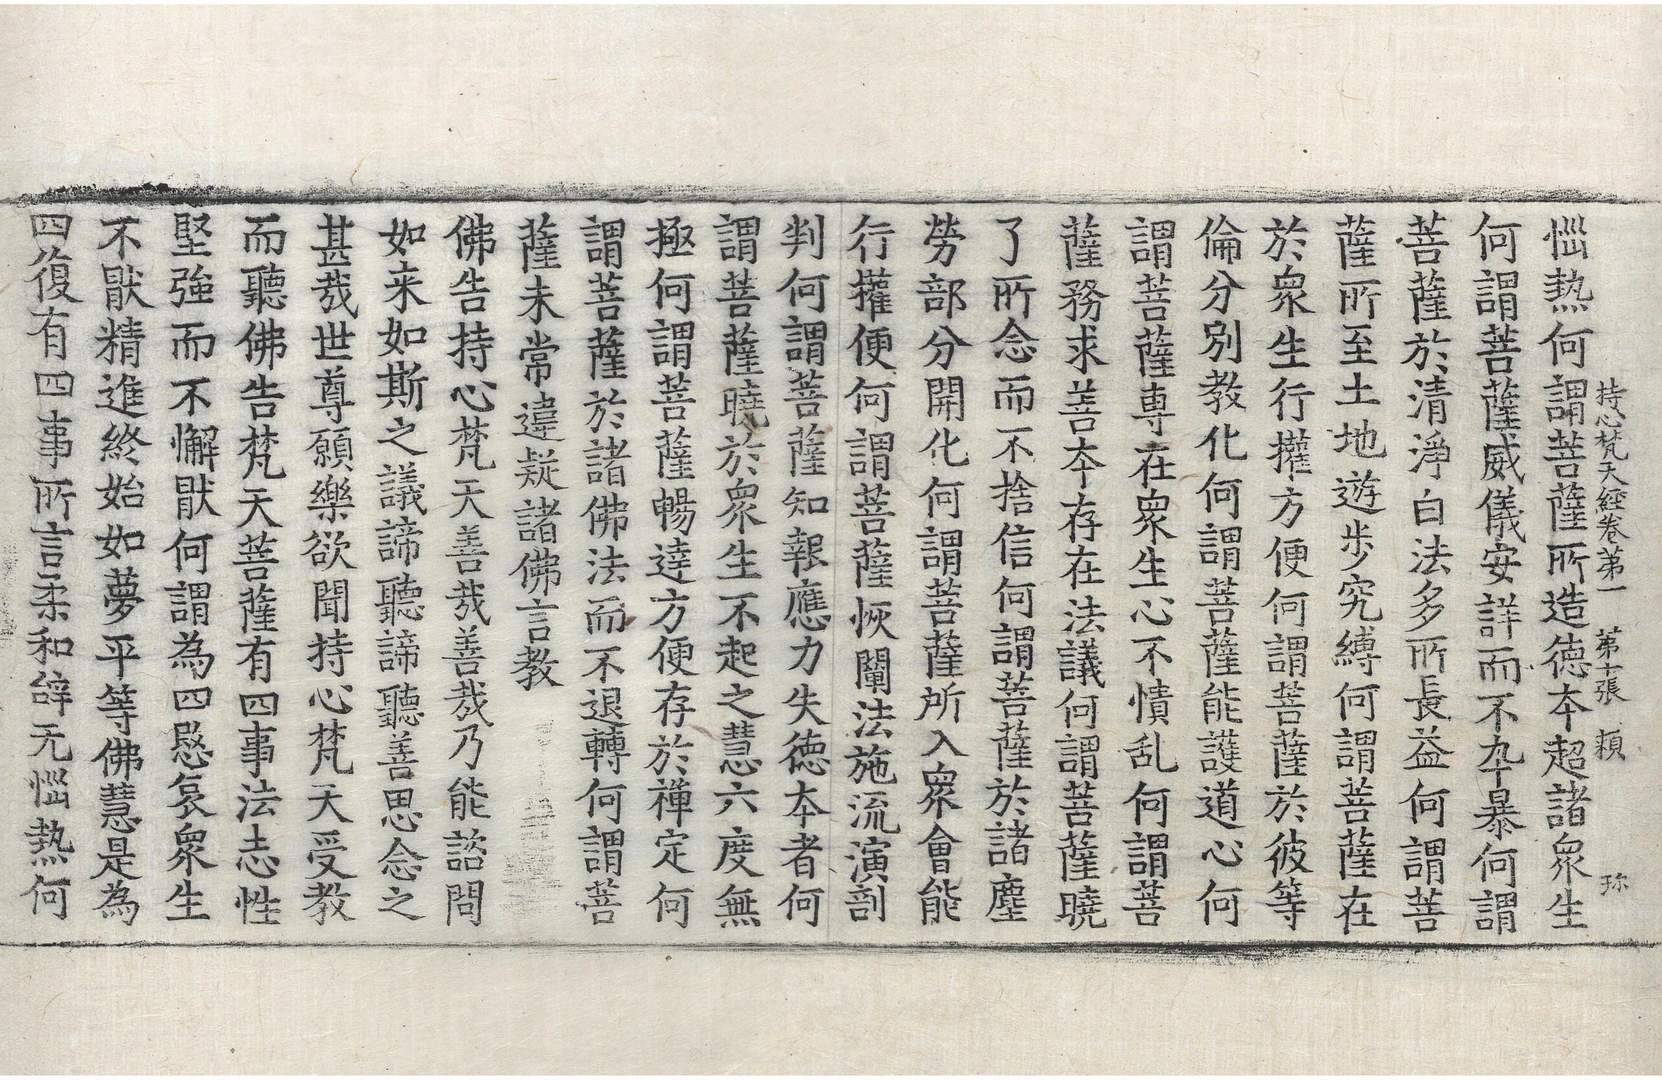 持心梵天經卷第一　第十張　賴　珎
惱熱何謂菩薩所造德夲超諸衆生
何謂菩薩威儀安詳而不卒暴何謂
菩薩於清淨白法多所長益何謂菩
薩所至土地遊步究縛何謂菩薩在
於衆生行權方便何謂菩薩於彼等
倫分別教化何謂菩薩能護道心何
謂菩薩專在衆生心不憒乱何謂菩
薩務求善夲存在法議何謂菩薩曉
了所念而不捨信何謂菩薩於諸塵
勞部分開化何謂菩薩所入衆會能
行權便何謂菩薩恢闡法施流演剖
判何謂菩薩知報應力失德夲者何
謂菩薩曉於衆生不起之慧六度無
極何謂菩薩暢達方便存於禪定何
謂菩薩於諸佛法而不退轉何謂菩
薩未常違疑諸佛言教
佛告持心梵天善哉善哉乃能諮問
如来如斯之議諦聽諦聽善思念之
甚哉世尊願樂欲聞持心梵天受教
而聽佛告梵天菩薩有四事法志性
堅強而不懈猒何謂為四愍哀衆生
不猒精進終始如夢平等佛慧是為
四復有四事所言柔和辝无惱熱何